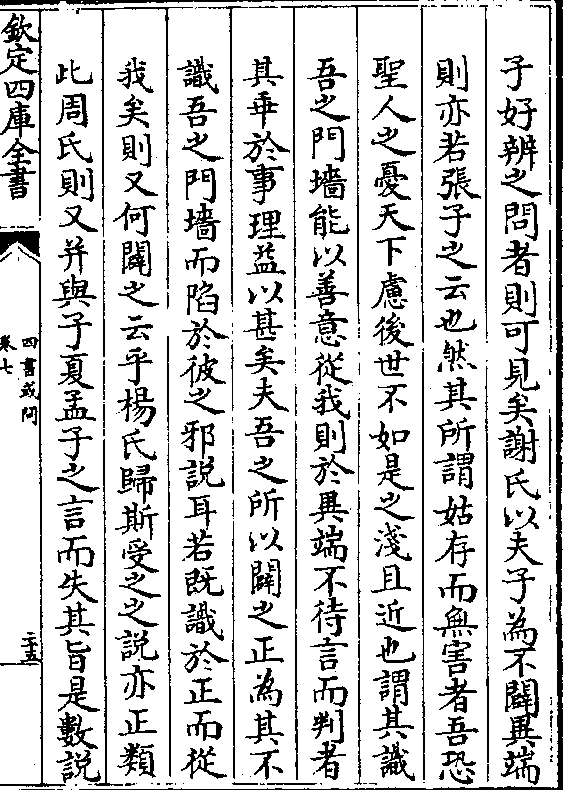 子好辨之問者則可見矣謝氏以夫子為不闢異端
則亦若張子之云也然其所謂姑存而無害者吾恐
聖人之憂天下慮後世不如是之淺且近也謂其識
吾之門墻能以善意從我則於異端不待言而判者
其乖於事理益以甚矣夫吾之所以闢之正為其不
識吾之門墻而陷於彼之邪説耳若既識於正而從
我矣則又何闢之云乎楊氏歸斯受之之説亦正類
此周氏則又并與子夏孟子之言而失其旨是數説
欽定四庫全書
四書或問
卷七
二十五